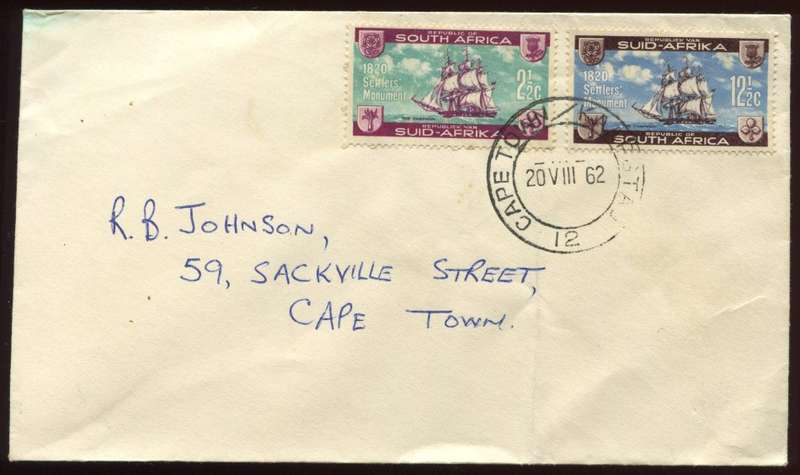 REPUBLIC OF
SOUTH AFRICA
1820
Settlers'
Monument
2½c
THE CHAPMAN
REPUBLIEK VAN
SUID-AFRIKA
REPUBLIEK VAN
SUID-AFRIKA
1820
Settlers'
Monument
12½c
REPUBLIC OF
SOUTH AFRICA
CAPE TOWN
20 VIII 62
12
R.B. JOHNSON,
59, SACKVILLE STREET,
CAPE TOWN.